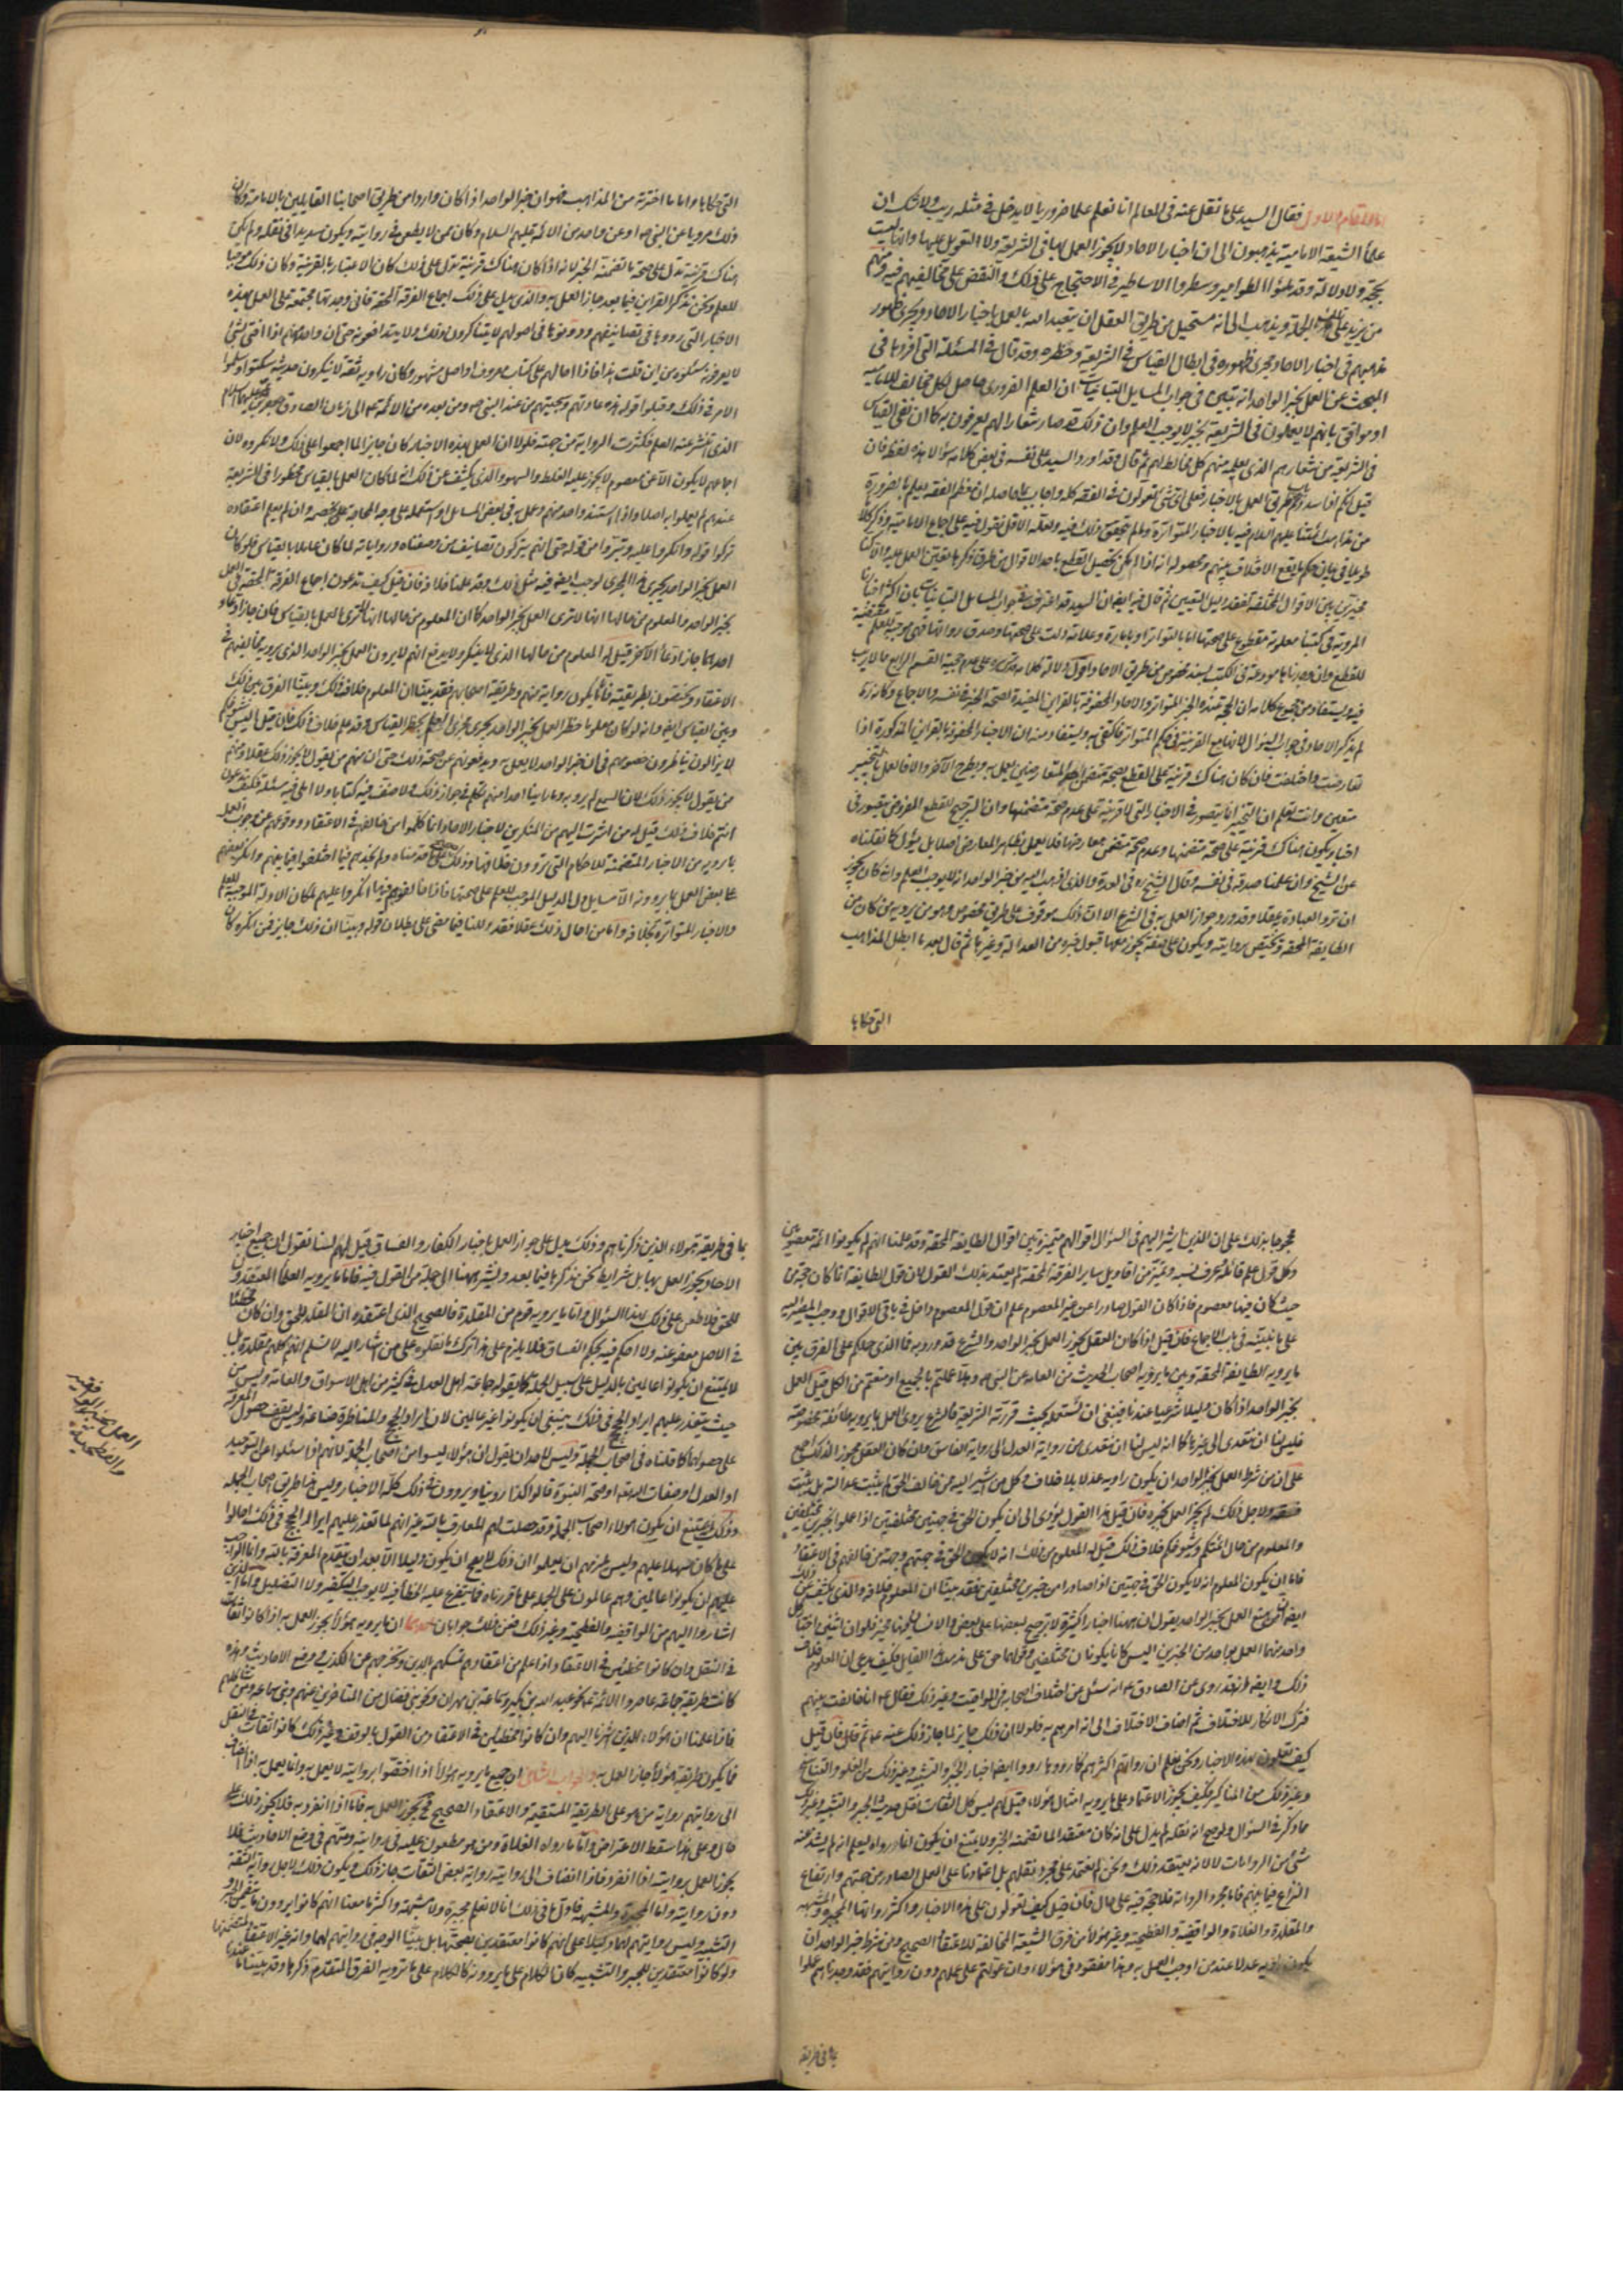 اما المقام الاول فقال السيد على ما نقل عنه فى المعالم انا نعلم علما ضروريا لا يدخل فى مثله ريب ولا شك ان
علماء الشيعة الامامية يذهبون الى ان اخبار الاحاد لا يجوز العمل بها فى الشريعة ولا التعويل عليها وانها ليست
بحجة ولا دلالة وقد ملئوا الطوامير وسطروا الاساطير فى الاحتجاج على ذلك والنقض على مخالفيهم فيه ومنهم
من يزيد على هذه الجملة ويذهب الى انه مستحيل من طريق العقل ان يتعبد الله بالعمل باخبار الاحاد ويجرى ظهور
مذهبهم فى اخبار الاحاد مجرى ظهوره فى ابطال القياس فى الشريعة وحظره وقد قال فى المسئلة التى افردها فى
البحث عن العمل بخبر الواحد انه تبين فى جواب المسايل التبانيات ان العلم الضرورى حاصل لكل مخالف للامامية
او موافق بانهم لا يعملون فى الشريعة بخبر لا يوجب العلم وان ذلك قد صار شعارا لهم يعرفون به كما ان نفى القياس
فى الشريعة من شعارهم الذى يعلمه منهم كل مخالط لهم ثم قال وقد اورد السيد على نفسه فى بعض كلامه سؤالا هذا لفظه فان
قيل اذا سددتم طريق العمل بالاخبار فعلى اى شئ تعولون فى الفقه كله واجاب بما حاصله ان معظم الفقه يعلم بالضرورة
من مذاهب ائمتنا عليهم السلام فيه بالاخبار المتواترة وما لم يتحقق ذلك فيه ولعله الاقل نعول فيه على اجماع الامامية وذكر كلاما
طويلا فى بيان حكم ما يقع الاختلاف بينهم ومحصوله انه اذا امكن تحصيل القطع باحد الاقوال من طرق ذكرها تعين العمل عليه والا كنا
مخيرين بين الاقوال المختلفة لفقد دليل التعيين ثم قال فيه ايضا ان السيد قد اعترف فى جواب المسايل التبانيات بان اكثر اخبارنا
المروية فى كتبنا معلومة مقطوع على صحتها اما بالتواتر او بامارة وعلامة دلت على صحتها وصدق رواتها فهى موجبة للعلم مقتضية
للقطع وان وجدناها مودعة فى الكتب بسند مخصوص من طريق الاحاد
لم يذكر الاحاد فى جواب السؤال
تعارضت واختلفت فان كان هناك قرينة على القطع بصحة
متعين وانت تعلم ان التخيير انما يتصور فى الاخبار التى لا قرينة على عدم صحة متضمنها وان الترجيح للقطع المفروض يتصور فى
اخبار يكون هناك قرينة على صحة متضمنها وعدم صحة متضمن معارضها فلا يعمل بظاهر المعارض اصلا بل يئول كما نقلناه
عن الشيخ وان علمنا صدقه فى نفسه وقال الشيخ ره فى العدة والذى اذهب اليه من خبر الواحد انه لا يوجب العلم وانه كان يجوز
ان ترد العبادة به عقلا وقد ورد جواز العمل به فى الشرع الا ان ذلك موقوف على طريق مخصوص وهو من يرويه من كان من
الطايفة المحقة ويختص بروايته ويكون على صفة يجوز معها قبول خبره من العدالة وغيرها ثم قال بعد ما ابطل المذاهب
التى حكاها
التى حكاها واما ما اخترته من المذاهب فهو ان خبر الواحد اذا كان واردا من طريق اصحابنا القايلين بالامامة وكان
ذلك مرويا عن النبى ص او عن واحد من الائمة عليهم السلام وكان ممن لا يطعن فى روايته ويكون سديدا فى نقله ولم يكن
هناك قرينة تدل على صحة ما تضمنه الخبر لانه اذا كان هناك قرينة تدل على ذلك كان الاعتبار بالقرينة وكان ذلك موجبا
للعلم ونحن نذكر القراين فيما بعد جاز العمل به والذى يدل على ذلك اجماع الفرقة المحقة فانى وجدتها مجتمعة على العمل بهذه
الاخبار التى رووها فى تصانيفهم ودونوها فى اصولهم لا يتناكرون ذلك ولا يتدافعونه حتى ان واحدا منهم اذا افتى بشئ
لا يعرفونه سئلوه من اين قلت هذا فاذا احالهم على كتاب معروف او اصل مشهور وكان راويه ثقة لا ينكرون حديثه سكتوا وسلموا
الامر فى ذلك وقبلوا قوله هذه عادتهم وسجيتهم من عهد النبى ص ومن بعده من الائمة ع الى زمان الصادق جعفر بن محمد عليهما السلام
الذى انتشر عنه العلم فكثرت الرواية من جهته فلولا ان العمل بهذه الاخبار كان جايزا لما اجمعوا على ذلك ولانكروه لان
اجماعهم لا يكون الا عن معصوم لا يجوز عليه الغلط والسهو والذى يكشف عن ذلك انه لما كان العمل بالقياس محظورا فى الشريعة
عندهم لم يعملوا به اصلا واذا استند واحد منهم وعمل به فى بعض المسايل او استعمله على وجه المحاجة لخصمه وان لم يعلم اعتقاده
تركوا قوله وانكروا عليه وتبرؤا من قوله حتى انهم يتركون تصانيف من وصفناه ورواياته لما كان عاملا بالقياس فلو كان
العمل بخبر الواحد يجرى هذا المجرى لوجب ايضا فيه مثل ذلك وقد علمنا خلافه فان قيل كيف تدعون اجماع الفرقة المحقة فى العمل
بخبر الواحد والمعلوم من حالها انها لا ترى العمل بخبر الواحد كما ان المعلوم من حالها انها لا ترى العمل بالقياس فان جاز ادعاء
احدهما جاز ادعاء الاخر قيل له المعلوم من حالها الذى لا ينكر ولا يدفع انهم لا يرون العمل بخبر الواحد الذى يرويه مخالفهم فى
الاعتقاد ويختصون بطريقته فاما ما يكون رواية منهم وطريقه اصحابهم فقد بينا ان المعلوم خلاف ذلك وبينا الفرق بين ذلك
وبين القياس ايضا وانه لو كان معلوما حظر العمل بخبر الواحد لجرى مجرى العلم بحظر القياس وقد علم خلاف ذلك فان قيل اليس شيوخكم
لا يزالون يناظرون خصومهم فى ان خبر الواحد لا يعمل به ويدفعونهم عن صحة ذلك حتى ان منهم من يقول لا يجوز ذلك عقلا ومنهم
من يقول لا يجوز ذلك لان السمع لم يرد به وما راينا احدا منهم تكلم فى جواز ذلك ولا صنف فيه كتابا ولا املى فيه مسئلة فكيف تدعون
انتم خلاف ذلك قيل له من اشرت اليهم من المنكرين لاخبار الاحاد انما كلموا من خالفهم فى الاعتقاد ودفعوهم عن وجوب العمل
بما يروونه من الاخبار المتضمنة للاحكام التى يروون خلافها وذلك صحيح على ما قدمناه ولم نجدهم فيما اختلفوا فيما بينهم وانكر بعضهم
على بعض العمل بما يروونه الا مسايل دل الدليل الموجب للعلم على صحتها فاذا خالفوهم فيها انكروا عليهم لمكان الادلة الموجبة للعلم
والاخبار المتواترة بخلافه واما من احال ذلك عقلا فقد دللنا فيما مضى على بطلان قوله وبينا ان ذلك جايز فمن انكره كان
محجوجا بذلك على ان الذين اشير اليهم فى السؤال اقوالهم متميزة بين اقوال الطايفة المحقة وقد علمنا انهم لم يكونوا ائمة معصومين
وكل قول علم قائله وعرف نسبه وتميز من اقاويل ساير الفرقة المحقة لم يعتد بذلك القول لان قول الطايفة انما كان حجة من
حيث كان فيها معصوم فاذا كان القول صادرا عن غير المعصوم علم ان قول المعصوم داخل فى باقى الاقوال ووجب المصير اليه
على ما نبينه فى باب الاجماع فان قيل اذا كان العقل يجوز العمل بخبر الواحد والشرع قد ورد به فما الذى حملكم على الفرق بين
ما يرويه الطايفة المحقة وبين ما يرويه اصحاب الحديث من العامة عن النبى ص وهلا عملتم بالجميع او منعتم من الكل قيل العمل
بخبر الواحد اذا كان دليلا شرعيا فينبغى ان نستعمله بحيث قررته الشريعة فالشرع يرى العمل بما يرويه طائفة مخصوصة
فليس لنا ان نتعدى الى غيرها كما انه ليس لنا ان نتعدى من رواية العدل الى رواية الفاسق وان كان العقل مجوزا لذلك اجمع
على ان من شرط العمل بخبر الواحد ان يكون راويه عدلا بلا خلاف وكل من اشير اليه ممن خالف الحق لم يثبت عدالته بل يثبت
فسقه ولاجل ذلك لم يجز العمل بخبره فان قيل هذا القول يؤدى الى ان يكون الحق فى جهتين مختلفتين اذا عملوا بخبرين مختلفين
والمعلوم من حال ائمتكم وشيوخكم خلاف ذلك قيل له المعلوم من ذلك انه لا يكون الحق فى جهتهم وجهة من خالفهم فى الاعتقاد
فاما ان يكون المعلوم انه لا يكون الحق فى جهتين اذا صادرا من خبرين مختلفين فقد بينا ان المعلوم خلافه والذى يكشف عن ذلك
ايضا ان من منع العمل بخبر الواحد يقول ان ههنا اخبارا كثيرة لا ترجيح لبعضها على بعض والانسان فيها مخير فلو ان اثنين اختار كل
واحد منهما العمل بواحد من الخبرين اليس كانا يكونان مختلفين وقولهما حق على مذهب هذا القايل فكيف يدعى ان المعلوم خلاف
ذلك وايضا فقد روى عن الصادق ع انه سئل عن اختلاف اصحابه فى المواقيت وغير ذلك فقال ع انا خالفت بينهم
فترك الانكار لاختلافهم ثم اضاف الاختلاف الى انه امرهم به فلولا ان ذلك جايز لما جاز ذلك عنه ع ثم قال فان قيل
كيف تعملون بهذه الاخبار ونحن نعلم ان رواتها اكثرهم كما رووها رووا ايضا اخبار الجبر والتشبيه وغير ذلك من الغلو والتناسخ
وغير ذلك من المناكير فكيف يجوز الاعتماد على ما يرويه امثال هؤلاء قيل لهم ليس كل الثقات نقل حديث الجبر والتشبيه وغير ذلك
مما ذكر فى السؤال ولو صح انه نقله لم يدل على انه كان معتقدا لما تضمنه الخبر ولا يمتنع ان يكون انما رواه ليعلم انه لم يشذ عنه
شئ من الروايات لا لانه يعتقد ذلك ونحن لم نعتمد على مجرد نقلهم بل اعتمادنا على العمل الصادر من جهتهم وارتفاع
النزاع فيما بينهم فاما مجرد الرواية فلا حجة فيه على حال فان قيل كيف تعولون على هذه الاخبار واكثر رواتها المجبرة والمشبهة
والمقلدة والغلاة والواقفية والفطحية وغير هؤلاء من فرق الشيعة المخالفة للاعتقاد الصحيح ومن شرط خبر الواحد ان
يكون راويه عدلا عند من اوجب العمل به وهذا مفقود فى هؤلاء وان عولتم على عملهم دون روايتهم فقد وجدناهم عملوا
بما فى طريقه
بما فى طريقه هؤلاء الذين ذكرناهم وذلك يدل على جواز العمل باخبار الكفار والفساق قيل لهم لسنا نقول ان جميع اخبار
الاحاد يجوز العمل بها بل لها شرايط نحن نذكرها فيما بعد ونشير ههنا الى جملة من القول فيه فاما ما يرويه العلماء المعتقدون
للحق فلا طعن على ذلك بهذا السؤال واما ما يرويه قوم من المقلدة فالصحيح الذى اعتقده ان المقلد للحق وان كان مخطئا
فى الاصل معفو عنه ولا احكم فيه بحكم الفساق فلا يلزم على هذا ترك ما نقلوه على ان من اشار اليه لا نسلم انهم كلهم مقلدة بل
لا يمتنع ان يكونوا عالمين بالدليل على سبيل الجملة كما يقوله جماعة اهل العدل فى كثير من اهل الاسواق والعامة وليس من
حيث يتعذر عليهم ايراد الحجج فى ذلك ينبغى ان يكونوا غير عالمين لان ايراد الحجج والمناظرة صناعة وليس يقف حصول المعرفة
على حصولها كما قلناه فى اصحاب الجملة وليس لاحد ان يقول ان هؤلاء ليسوا من اصحاب الجملة لانهم اذا سئلوا عن التوحيد
او العدل او صفات الله تع او صحة النبوة قالوا كذا روينا ويروون فى ذلك كله الاخبار وليس هذا طريق اصحاب الجملة
وذلك انه لا يمتنع ان يكون هؤلاء اصحاب الجملة وقد حصلت لهم المعارف بالله غير انهم لما تعذر عليهم ايراد الحجج فى ذلك احالوا
على ما كان سهلا عليهم وليس يلزمهم ان يعلموا ان ذلك لا يصح ان يكون دليلا الا بعد ان يتقدم المعرفة بالله وانما الواجب
عليهم ان يكونوا عالمين وهم عالمون على الجملة على ما قررناه فما يتفرع عليه الخطأ فيه لا يوجب التكفير ولا التضليل واما الذين
اشاروا اليهم من الواقفية والفطحية وغير ذلك فمن ذلك جوابان احدهما ان ما يرويه هؤلاء يجوز العمل به اذا كانوا ثقات
فى النقل وان كانوا مخطئين فى الاعتقاد اذا علم من اعتقادهم تمسكهم بالدين وتحرجهم عن الكذب ووضع الاحاديث وهذه
كانت طريقة جماعة عاصروا الائمة ع نحو عبد الله بن بكير وسماعة بن مهران ونحو بنى فضال من المتاخرين عنهم وبنى سماعة ومن شاكلهم
فاذا علمنا ان هؤلاء الذين اشرنا اليهم وان كانوا مخطئين فى الاعتقاد من القول بالوقف وغير ذلك كانوا ثقات فى النقل
فما يكون طريقه هؤلاء جاز العمل به والجواب الثانى ان جميع ما يرويه هؤلاء اذا اختصوا بروايته لا يعمل به وانما يعمل به اذا انضاف
الى روايتهم رواية من هو على الطريقة المستقيمة والاعتقاد الصحيح فح يجوز العمل به فاما اذا انفرد به فلا يجوز ذلك على
حال وعلى هذا سقط الاعتراض واما ما رواه الغلاة ومن هو مطعون عليه فى روايته ومتهم فى وضع الاحاديث فلا
يجوز العمل بروايته اذا انفرد فاذا انضاف الى روايته رواية بعض الثقات جاز ذلك ويكون ذلك لاجل رواية الثقة
دون روايته واما المجبرة والمشبهة فاول ما فى ذلك انا لا نعلم مجبرة ولا مشبهة واكثر ما معنا انهم كانوا يروون ما يتضمن الجبر
والتشبيه وليس روايتهم لها دليلا على انهم كانوا معتقدين لصحتها بل بينا الوجه فى روايتهم لها وانه غير الاعتقاد لمتضمنها
ولو كانوا معتقدين للجبر والتشبيه كان الكلام على ما يروونه كالكلام على ما ترويه الفرق المتقدم ذكرها وقد بينا ما عندنا
العمل بخبر الواقفية
والفطحية